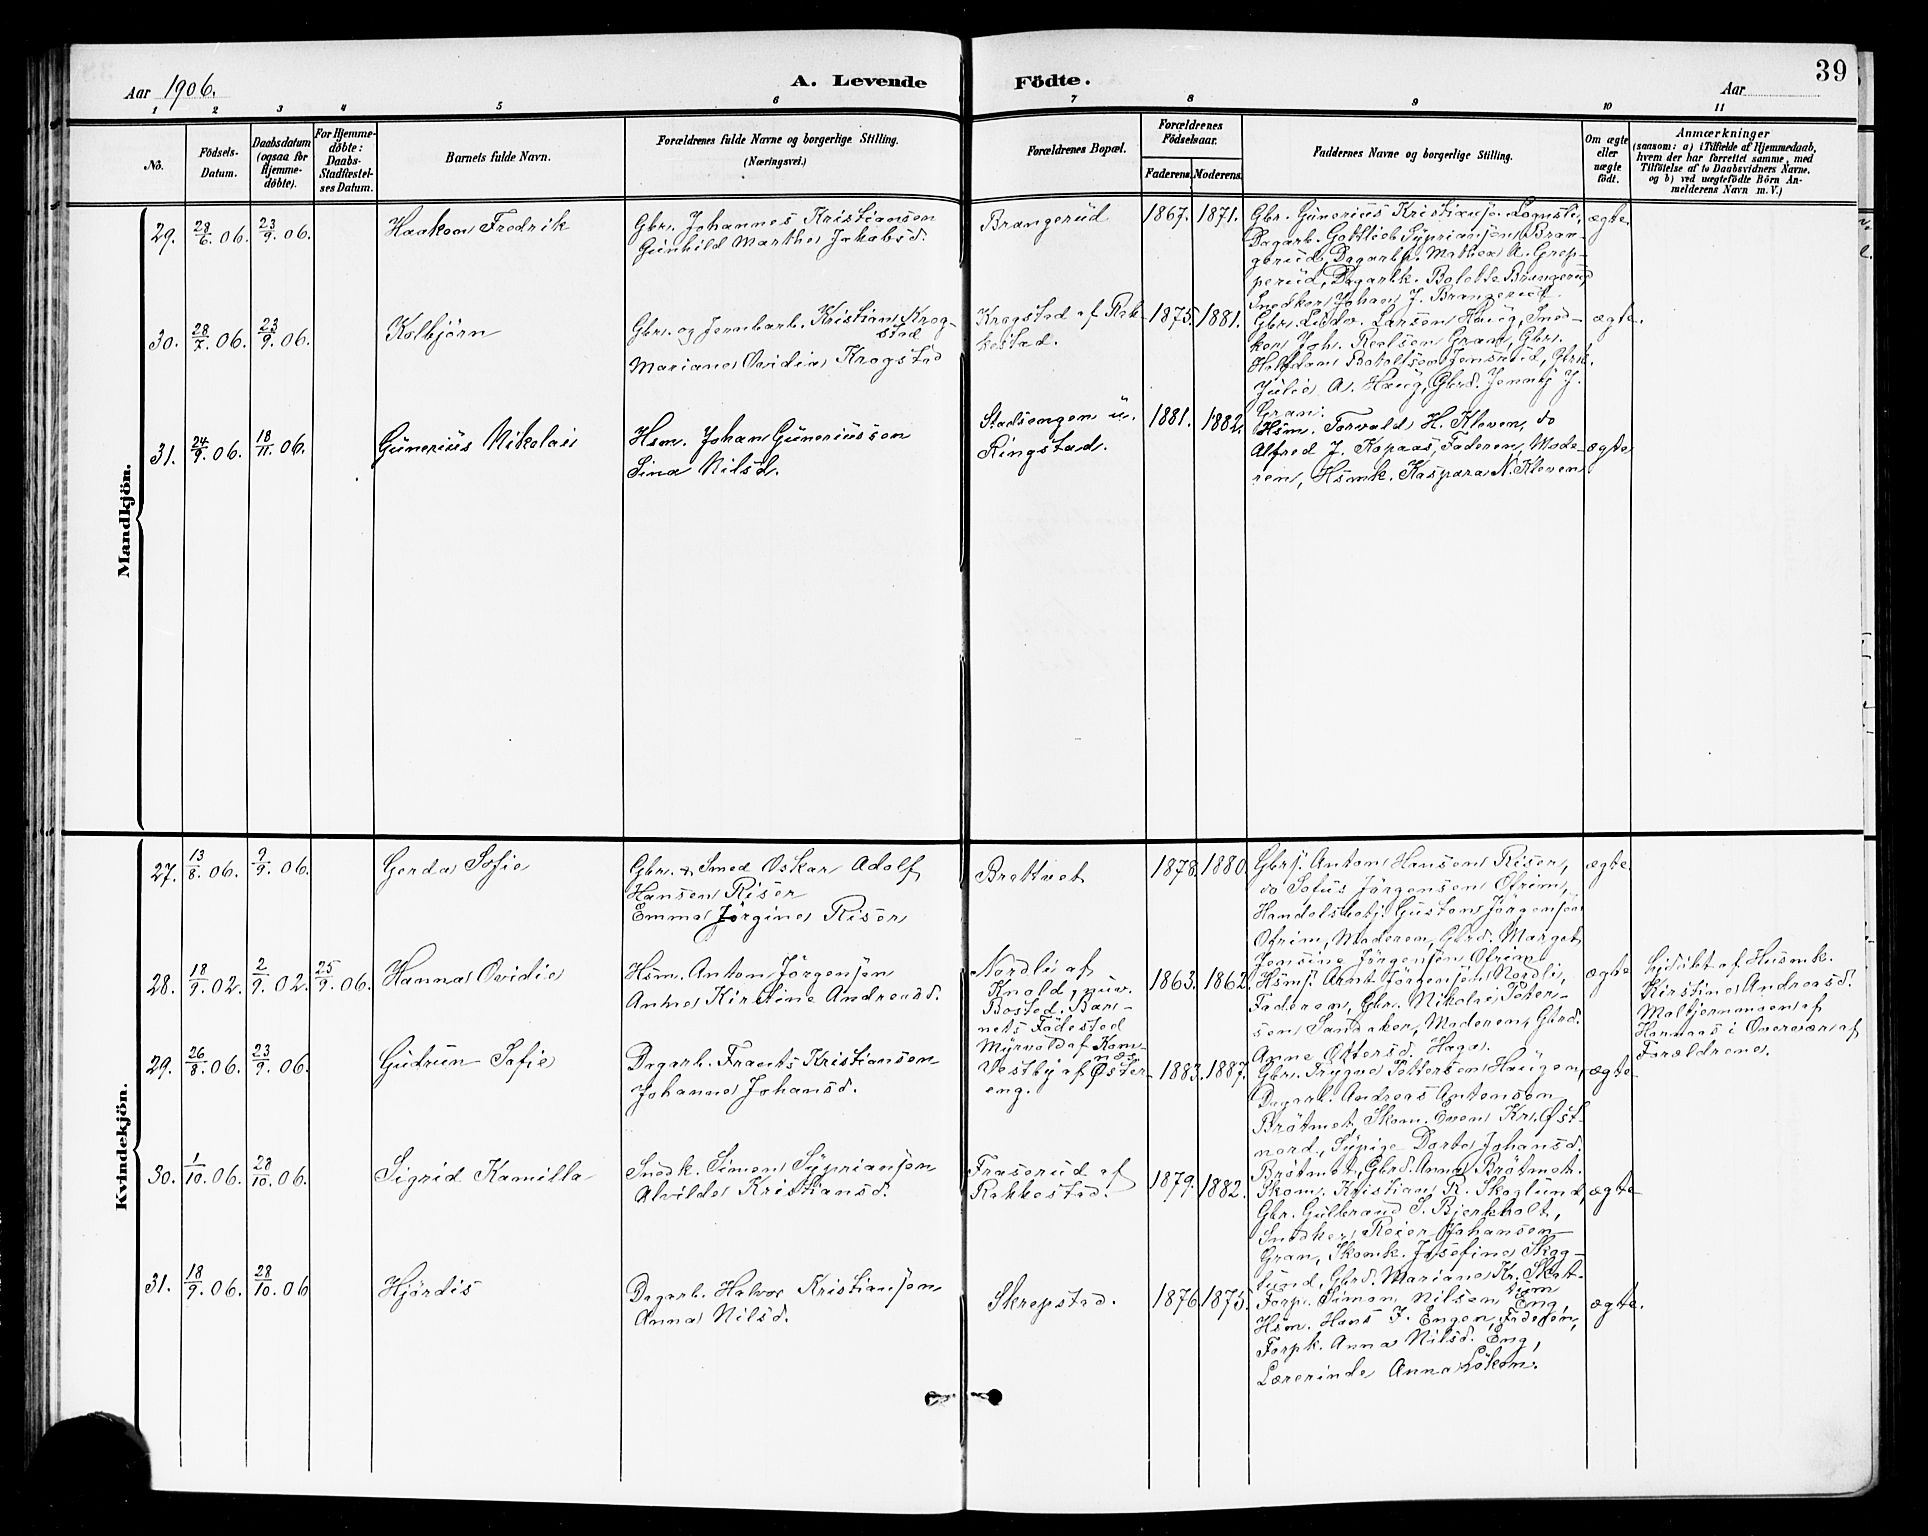 39
Aar 1906.
A. Levende Födte.
Aar
1 2 3 4 5 6 7 8 9 10 11
No.
Födsels-
Datum.
Daabsdatum
(ogsaa for
Hjemme-
døbte).
For Hjemme-
døbte:
Daabs-
Stadfæstel-
ses Datum.
Barnets fulde Navn.
Forældrenes fulde Navne og borgerlige Stilling.
(Næringsvei.)
Forældrenes Bopæl.
Forældrenes
Födselsaar.
Faderens. Moderens.
Faddernes Navne og borgerlige Stilling.
Om ægte
eller
uægte
født.
Anmærkninger
(saasom: a) i Tilfælde af Hjemmedaab,
hvem der har forrettet samme, med
Tilföielse af to Daabsvidners Navne.
og b) ved uægtefödte Börn An-
melderens Navn m. V.)
Mandkjön.
29. 28/6 06. 23/9 06.
Haakon Fredrik
Gbr. Johannes Kristiansen
Gunhild Marthe Jakobsd.
Brangerud
1867. 1871.
Gbr. Gunerius Kristiansen
Dagarb. Gottlieb Sypriansen Bran-
gerud, Dagarbk. Mathea A. Grep-
perud, Dagarbk. Bolette Brangerud
Snedker Johan J. Brangerud.
ægte.
30. 28/7 06. 23/9 06.
Kolbjörn
Gbr. og Jernbarb. Kristian Krog-
stad
Mariane Ovidia Krogstad
Krogstad af Rak-
kestad.
1875. 1881.
Gbr. Ludv. Larsen Haug, Sned-
ker Joh. Gran, Gbr.
Halfdan Jensrud,
Julie A. Haug, Gbrd. Jenny J.
Gran.
ægte.
31. 24/9 06. 18/11 06.
Gunerius Nikolai
Hsm. Johan Guneriussen
Lina Nilsd.
Stadsengen u.
Ringstad.
1881. 1882.
Hsm. Torvald H. Kleven, do
Alfred J. Kopaas, Faderen, Mode-
ren, Hsmk. Kaspara N. Kleven
ægte
Kvindekjön.
27. 13/8 06. 9/9 06.
Gerda Sofie
Gbr. & Smed Oskar Adolf
Hansen Riser
Emma Jörgine Riser
Brattvet
1878. 1880.
Gbrs. Anton Hansen Riser,
do Sofus Jörgensen Ofrim,
Handelsbetj. Gustav Jörgensen
Ofrim, Moderen, Gbrd. Margot
Jensine Jörgensen Ofrim
ægte
28. 18/9 02. 2/9 02. 25/9 06.
Hanna Ovidie
Hsm. Anton Jörgensen
Anne Kirstine Andreasd.
Nordli af
Knold, nuv.
Bosted. Bar-
nets Fødested
Myrvold af Kam-
næs
1863. 1862.
Hsms. Arnt Jörgensen Nordli,
Faderen, Gbr. Nikolai Peter-
sen Sandaker, Moderen, Gbrd.
Anne Ottersd. Haga.
ægte
Hjdöbt af Husmk.
Kirstine Andreasd.
Maltjernangen af
i Overvær af
Forældrene.
29. 26/8 06. 23/9 06.
Gudrun Sofie
Dagarb. Frants Kristiansen
Johanne Johansd.
Vestby af Øster-
eng.
1883. 1887.
Gbr. Trygve Pettersen Haugen,
Dagarb. Andreas Antonsen
Bråtmet, Skom. Even Kr. Øst-
nord, Sypige Dorte Johansd.
Bråtmet, Gbrd. Anna Bråtmet.
ægte
30. 1/10 06. 28/10 06.
Sigrid Kamilla
Snedk. Simen Sypriansen
Alvilde Kristiansd.
Fraserud af
Rakkestad.
1879. 1882.
Skom. Kristian R. Skoglund,
Gbr. Gulbrand S. Bjerkholt,
Snedker Reier Johansen
Gran, Skomk. Josefine Skog-
lund, Gbrd. Mariane Kr. Skat-
vum
ægte
31. 18/9 06. 28/10 06
Hjördis
Dagarb. Halvor Kristiansen
Anna Nilsd.
Skrepstad.
1876. 1875.
Forp. Simon Nilsen Eng,
Hsm. Hans J. Engen, Faderen,
Forpk. Anna Nilsd. Eng,
Lærerinde Anna Løken.
ægte.